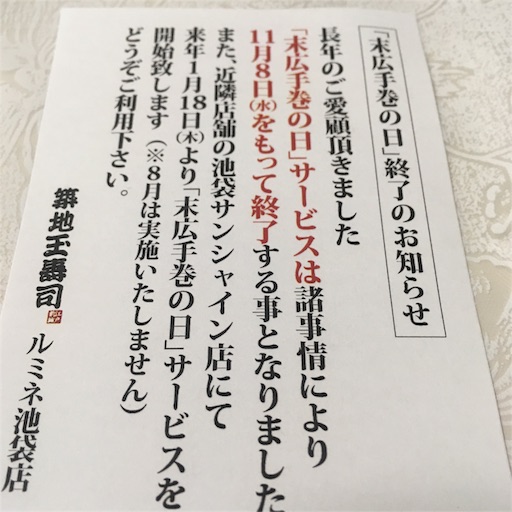 「末広手巻の日」終了のお知らせ
長年のご愛願頂きました
「末広手巻の日」サービスは諸事情により
11月8日(水)をもって終了する事となりました
また、近隣店舗の池袋サンシャイン店にて
来年1月18日(木)より「末広手巻の日」サービスを
開始致します(※8月は実施いたしません)
どうぞご利用下さい。
築地玉寿司 ルミネ池袋店